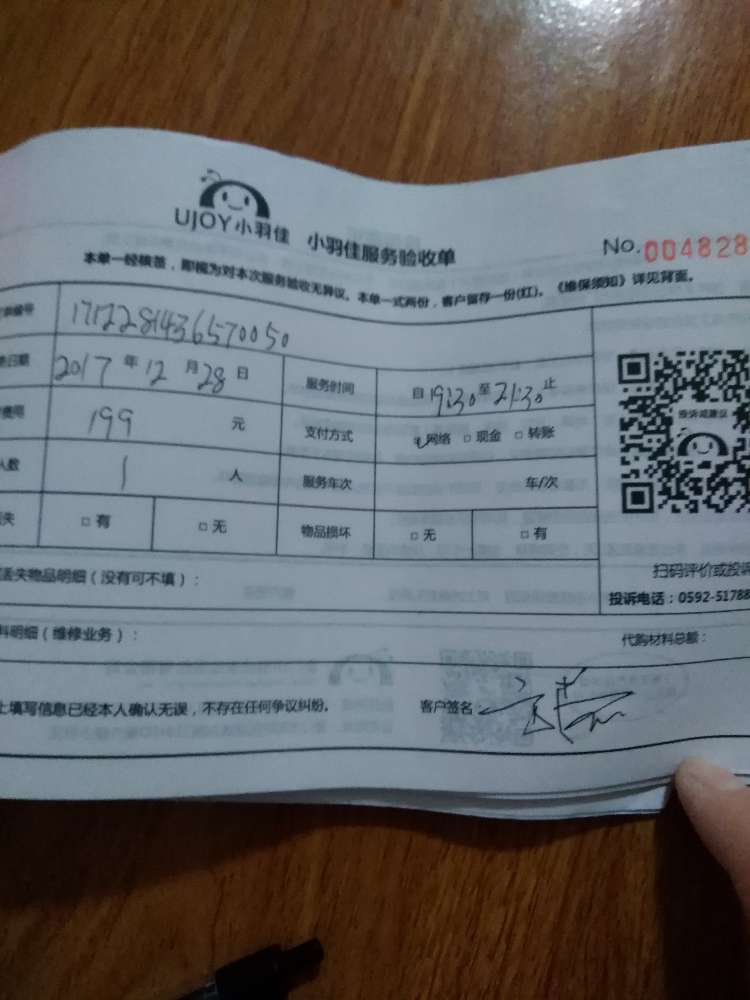 UJOY小羽佳 小羽佳服务验收单 No.004828
本单一经核签，即视为对本次服务验收无异议。本单一式两份，客户留存一份(红)。《维保须知》详见背面。
编号 1712281436570050
日期 2017年12月28日 服务时间 自19:30至21:30止
费用 199元 支付方式 ☑网络 □现金 □转账
人数 1人 服务车次 车/次
失 □有 □无 物品损坏 □无 □有
投诉或建议
扫码评价或投诉
投诉电话：0592-51788
丢失物品明细（没有可不填）：
料明细（维修业务）： 代购材料总额：
上填写信息已经本人确认无误，不存在任何争议纠纷。 客户签名：